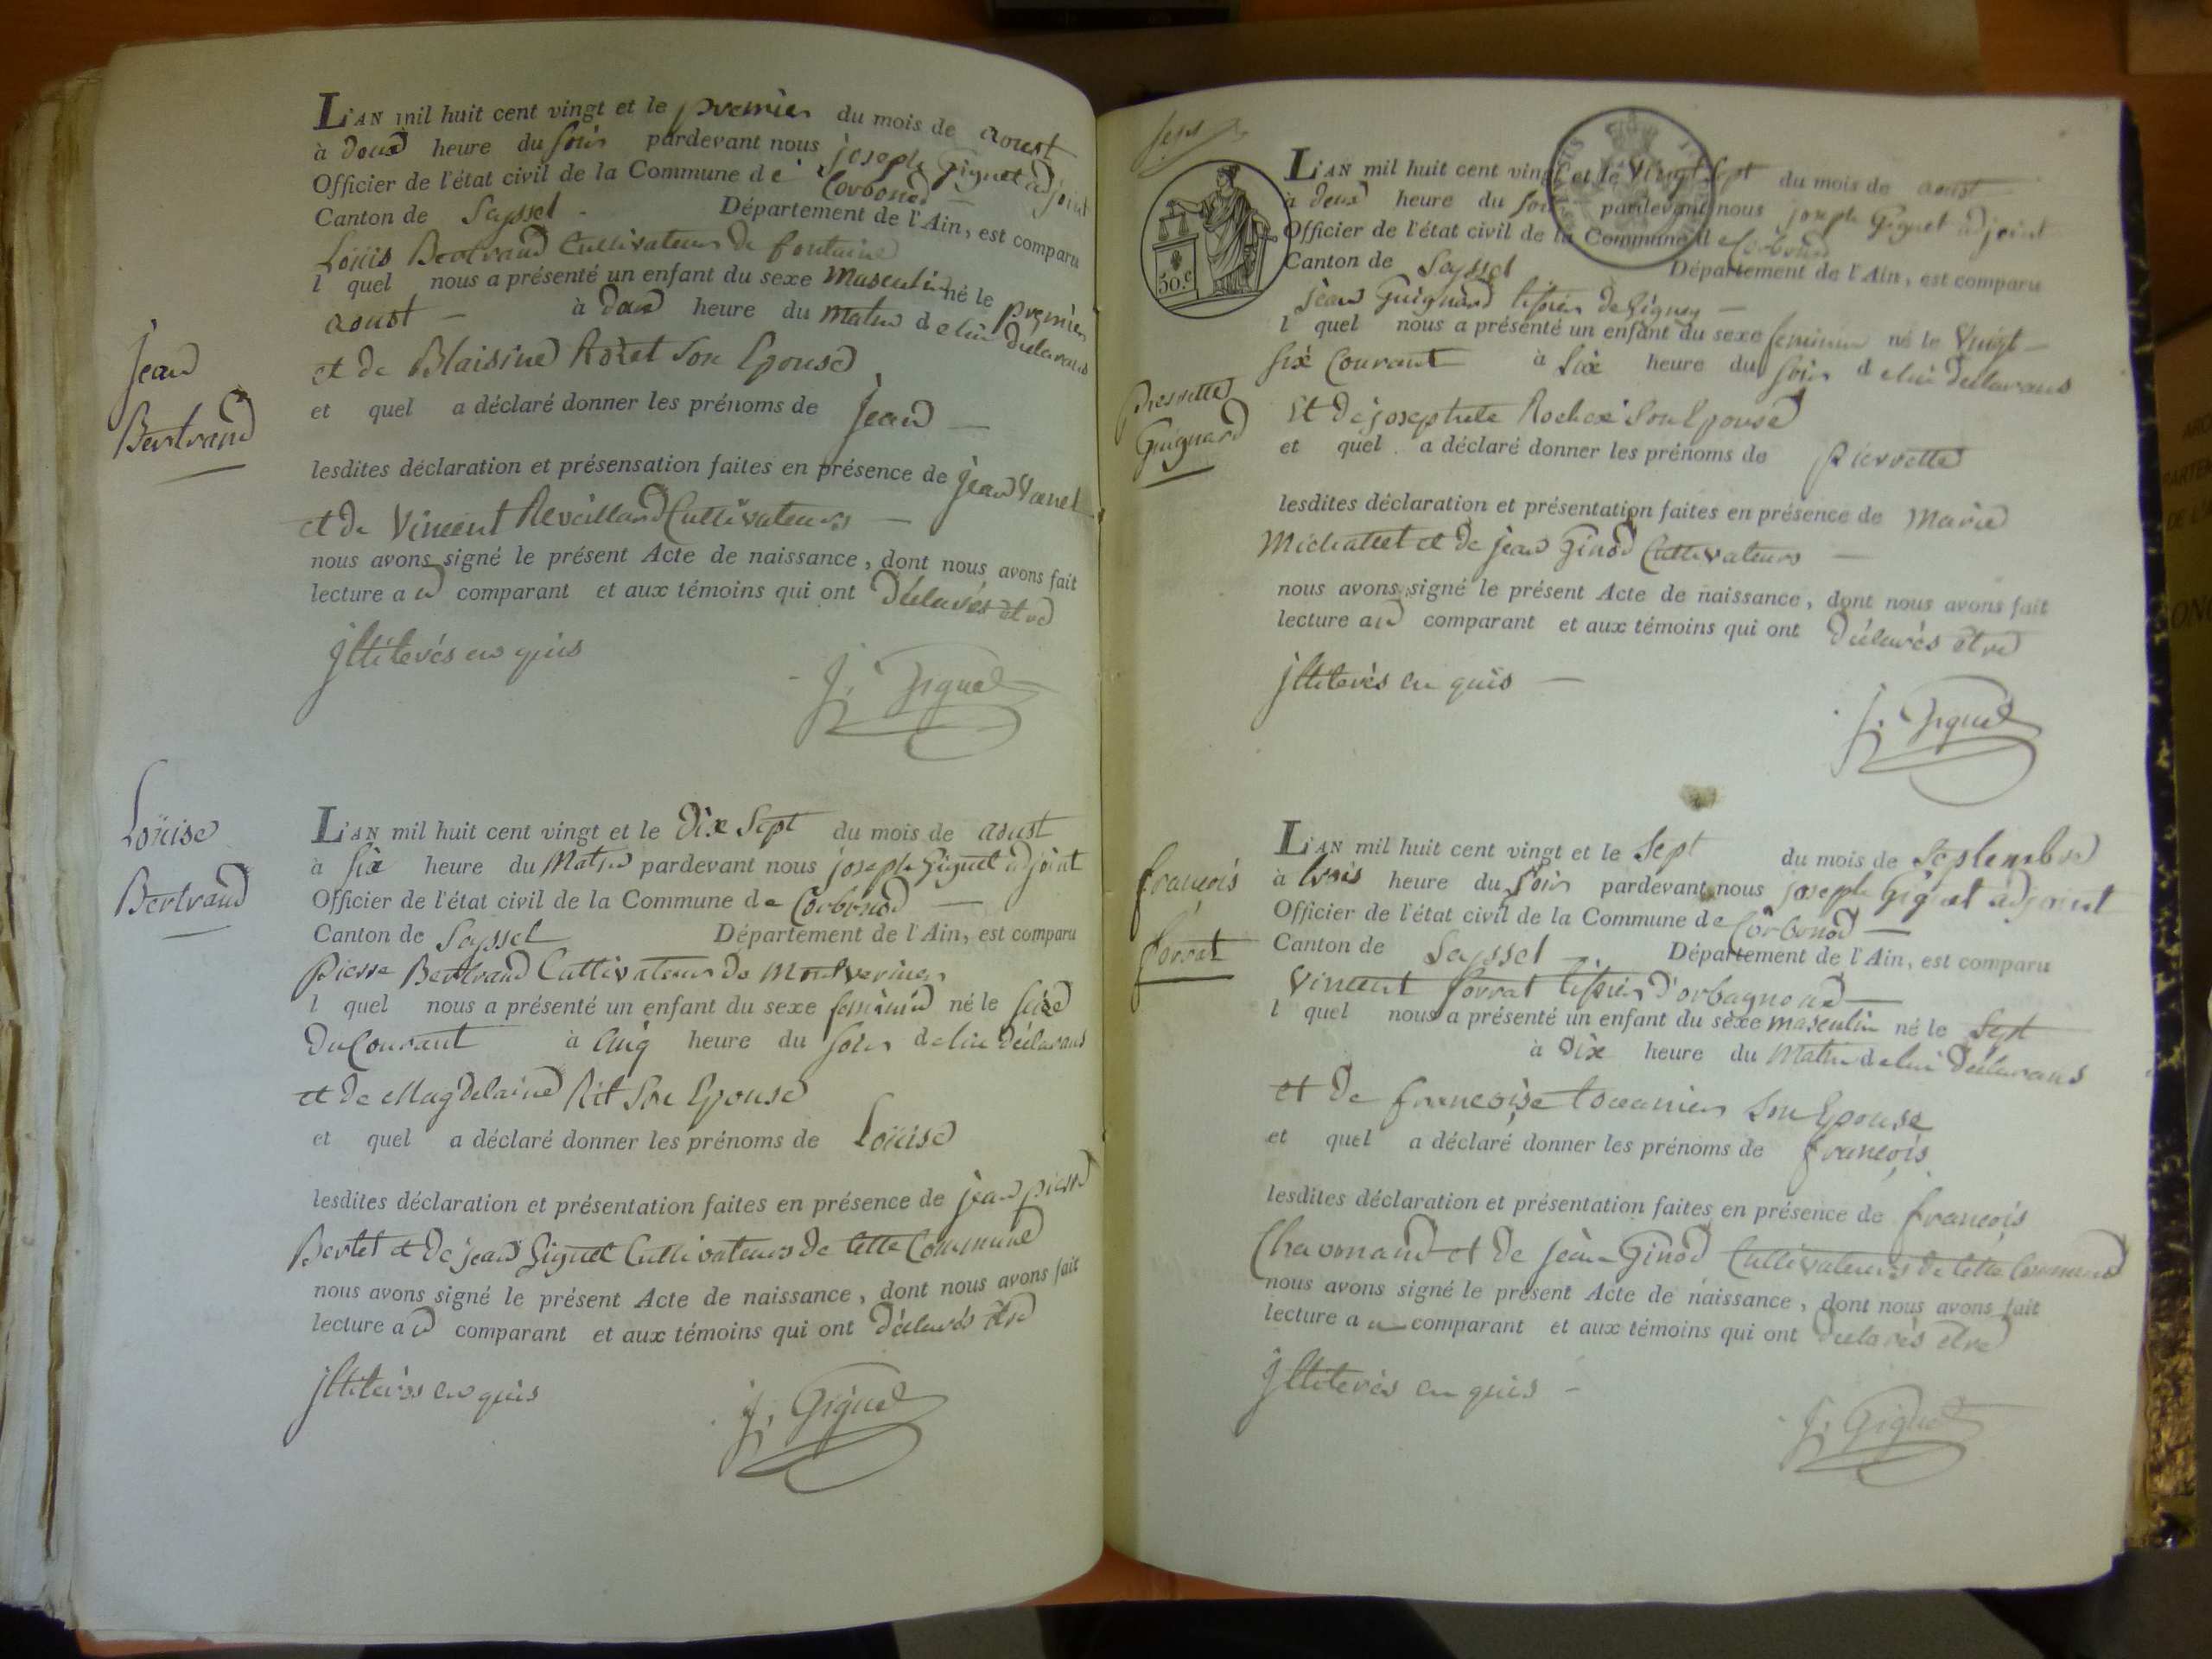 L'AN mil huit cent vingt et le premier du mois de aoust
à doux heure du soir pardevant nous joseph Giguet adjoint
Officier de l'état civil de la Commune de Corbonod
Canton de Seyssel - Département de l'Ain, est comparu
Loüis Bertrand Cultivateur de fontaine
l quel nous a présenté un enfant du sexe masculin né le premier
aoust - à heure du matin de lui déclarant
et de Blaisine Rozet son Epouse
et quel a déclaré donner les prénoms de jean
lesdites déclaration et présensation faites en présence de jean
et de Vincent Reveillard Cultivateurs
nous avons signé le présent Acte de naissance, dont nous avons fait
lecture au comparant et aux témoins qui ont déclarés etre
jlliterés en quis
J. Giguet
Jean
Bertrand
L'AN mil huit cent vingt et le dix sept du mois de aoust
à six heure du Matin pardevant nous joseph Giguet adjoint
Officier de l'état civil de la Commune de Corbonod
Canton de Seyssel Département de l'Ain, est comparu
Pierre Bertrand Cultivateur de
l quel nous a présenté un enfant du sexe feminin né le seize
du Courant à Cinq heure du soir de lui déclarant
et de Magdelaine Rit son Epouse
et quel a déclaré donner les prénoms de Loüise
lesdites déclaration et présentation faites en présence de jean pierre
Bertet et de jean Giguet Cultivateurs de cette Commune
nous avons signé le présent Acte de naissance, dont nous avons fait
lecture au comparant et aux témoins qui ont déclarés etre
jlliterés en quis
J. Giguet
Loüise
Bertrand
50.c
L'AN mil huit cent vingt et le vingt sept du mois de aoust
à deux heure du soir pardevant nous joseph Giguet adjoint
Officier de l'état civil de la Commune de Corbonod
Canton de Seyssel Département de l'Ain, est comparu
jean Guignard tissier de
l quel nous a présenté un enfant du sexe feminin né le Vingt
six Courant à six heure du soir de lui déclarant
Et de josephte son Epouse
et quel a déclaré donner les prénoms de pierrette
lesdites déclaration et présentation faites en présence de Marie
et de jean Ginod Cultivateurs
nous avons signé le présent Acte de naissance, dont nous avons fait
lecture au comparant et aux témoins qui ont déclarés etre
jlliterés en quis
J. Giguet
pierrette
Guignard
L'AN mil huit cent vingt et le sept du mois de septembre
à trois heure du soir pardevant nous joseph Giguet adjoint
Officier de l'état civil de la Commune de Corbonod
Canton de Seyssel Département de l'Ain, est comparu
Vincent forrat tissier d'orbagnoud
l quel nous a présenté un enfant du sexe masculin né le Sept
à dix heure du Matin de lui déclarant
et de francoise son Epouse
et quel a déclaré donner les prénoms de francois
lesdites déclaration et présentation faites en présence de francois
Chavonand et de jean Ginod Cultivateurs de cette Commune
nous avons signé le présent Acte de naissance, dont nous avons fait
lecture au comparant et aux témoins qui ont déclarés etre
jlliterés en quis -
J. Giguet
francois
forrat